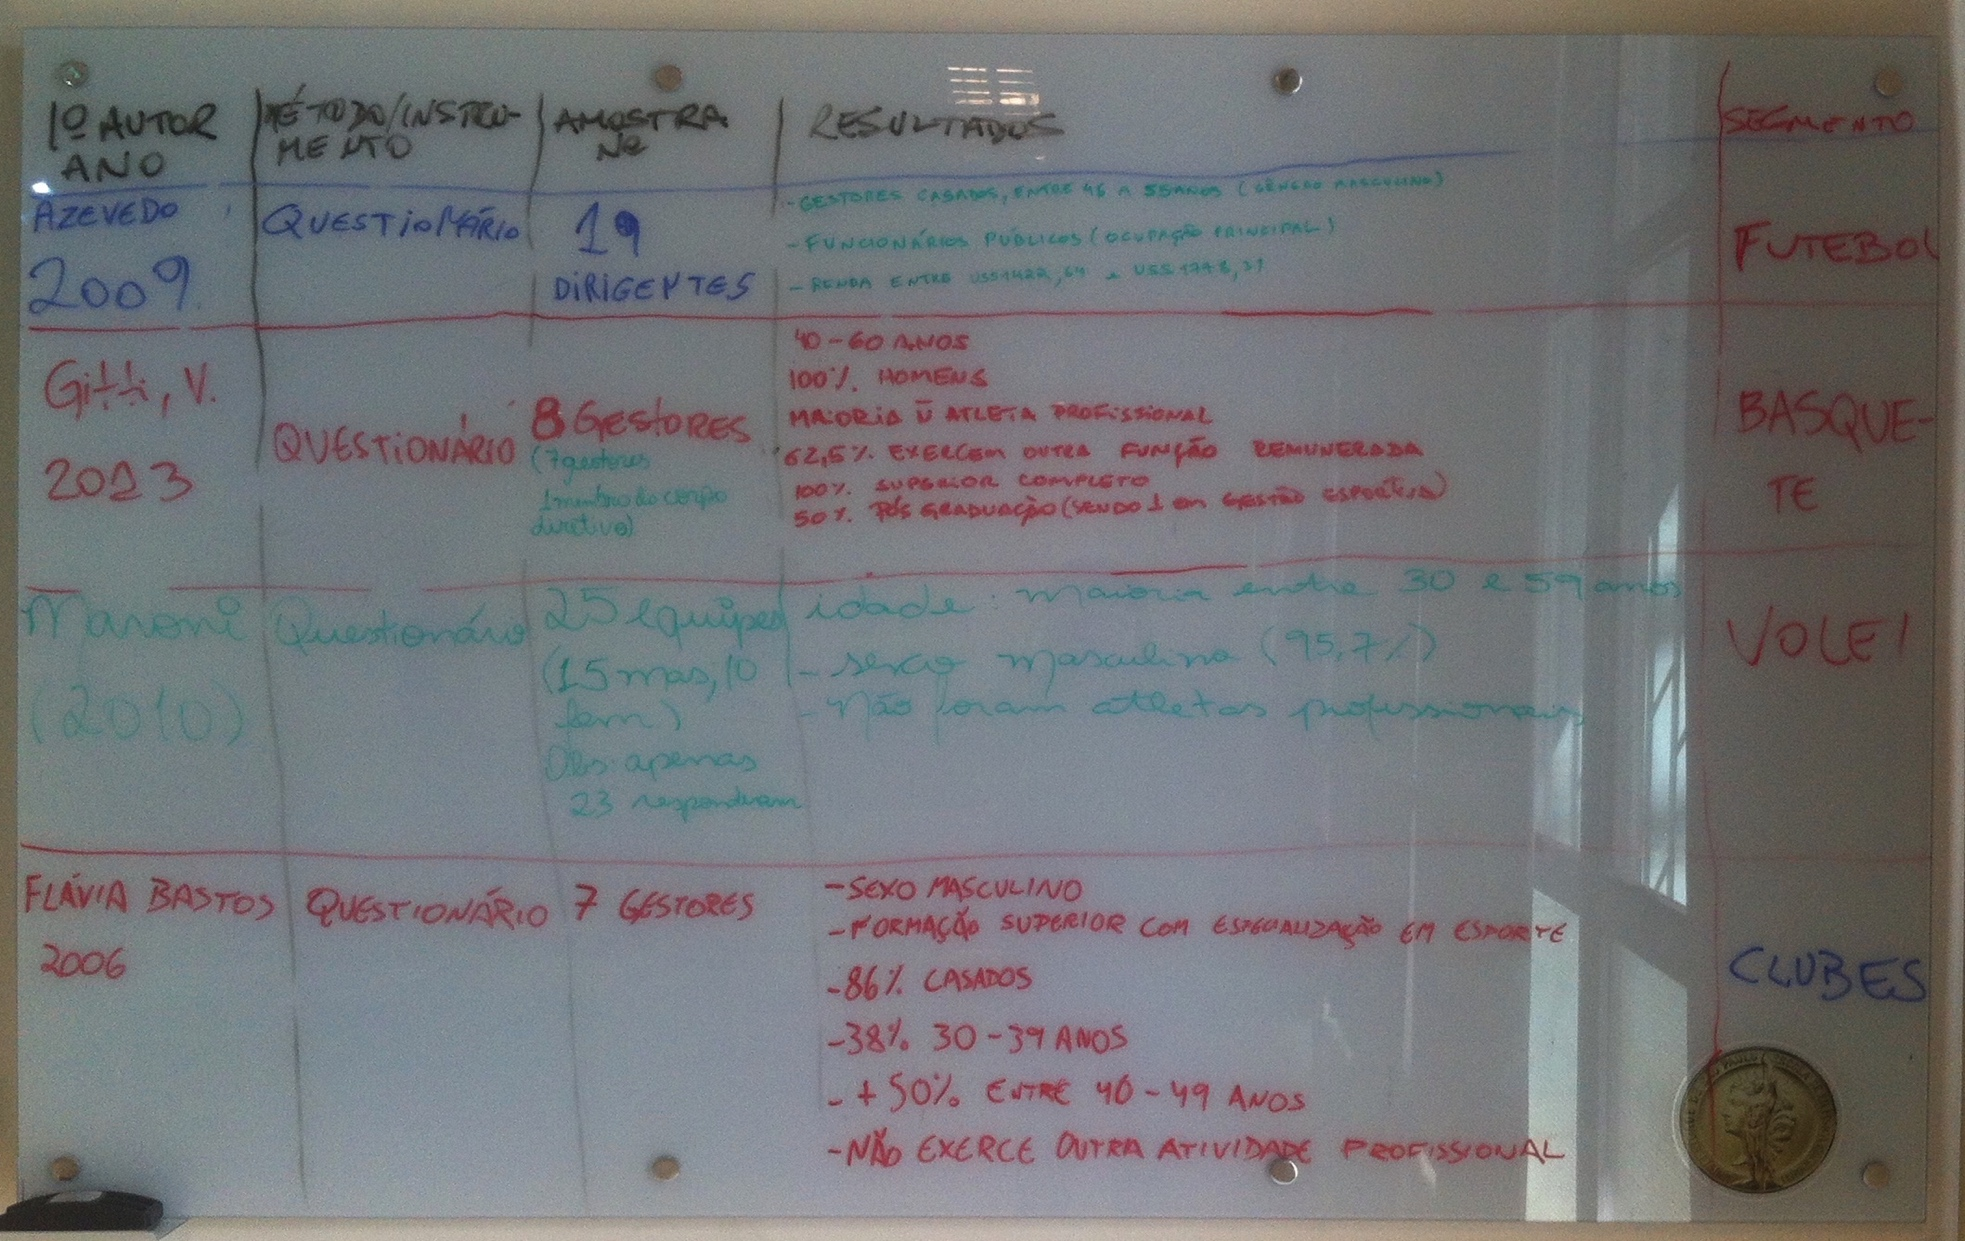 1º AUTOR
ANO
MÉTODO/INSTRU-
MENTO
AMOSTRA
Nº
RESULTADOS
SEGMENTO
AZEVEDO
2009.
QUESTIONÁRIO
19
DIRIGENTES
- GESTORES CASADOS, ENTRE 46 A 55 ANOS (GÊNERO MASCULINO)
- FUNCIONÁRIOS PÚBLICOS (OCUPAÇÃO PRINCIPAL)
- RENDA ENTRE
FUTEBOL
Gitti, V.
2013
QUESTIONÁRIO
8 GESTORES
(7 gestores
1 membro do corpo
diretivo)
40-60 ANOS
100% HOMENS
MAIORIA Ū ATLETA PROFISSIONAL
62,5% EXERCEM OUTRA FUNÇÃO REMUNERADA
100% SUPERIOR COMPLETO
50% PÓS GRADUAÇÃO (SENDO 1 em GESTÃO ESPORTIVA)
BASQUE-
TE
Maroni
(2010)
Questionário
25 equipes
(15 mas, 10
fem)
Obs: apenas
23 responderam
idade: maioria entre 30 e 59 anos
- sexo masculino (95,7%)
- Não foram atletas profissionais
VOLEI
FLÁVIA BASTOS
2006
QUESTIONÁRIO
7 GESTORES
- SEXO MASCULINO
- FORMAÇÃO SUPERIOR COM ESPECIALIZAÇÃO EM ESPORTE
- 86% CASADOS
- 38% 30-39 ANOS
- + 50% ENTRE 40-49 ANOS
- NÃO EXERCE OUTRA ATIVIDADE PROFISSIONAL
CLUBES